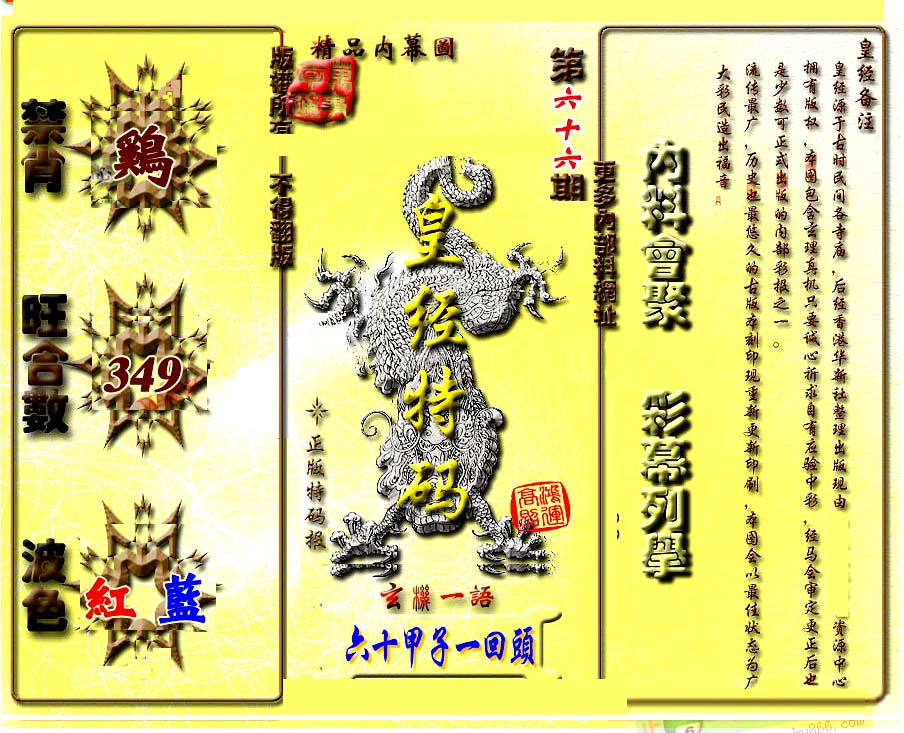 皇经备注
皇经源于古时民间各寺庙，后经香港华新社整理出版现由
资源中心
拥有版权，本图包含玄理真机只要诚心祈求自有应验中彩，经马会审定更正后也
是少数可正式出版的内部彩报之一。
流传最广，历史也最悠久的古版本刻印现重新更新印刷，本图会以最佳状态为广
大彩民造出福音
内料會聚
彩幕列舉
更多内部料網址
第六十六期
精品内幕圖
版權所有
不得翻版
皇经特码
正版特码报
鴻運
高照
玄機一語
六十甲子一回頭
禁肖
鷄
旺合數
349
波色
紅 藍